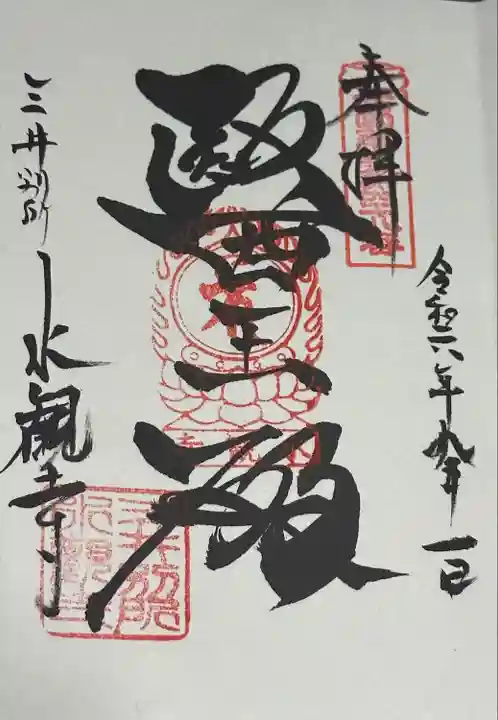 奉拝
令和六年九月一日
醫王殿
三井別所
水観寺